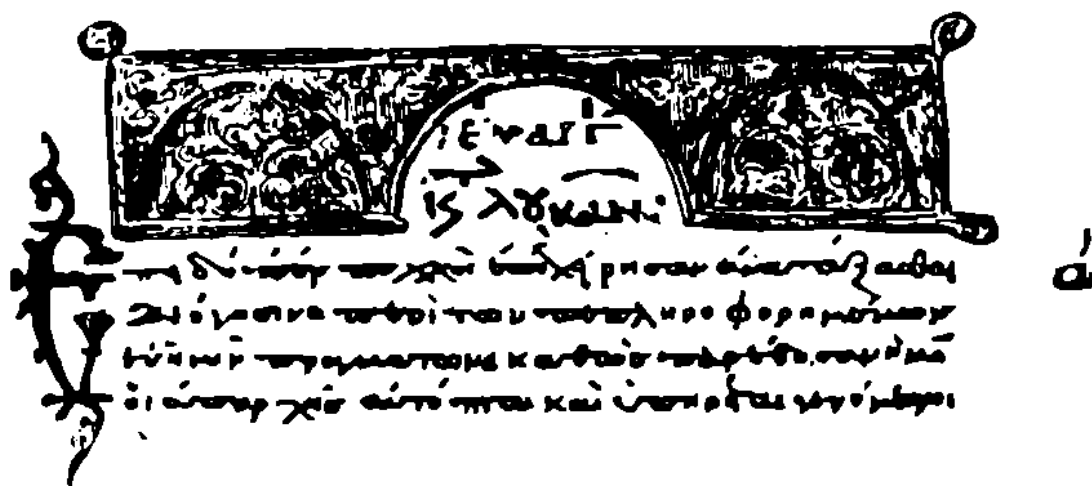 λουκαν
Ἐπειδήπερ πολλοὶ ἐπεχείρησαν ἀνατάξασθαι
διήγησιν περὶ τῶν πεπληροφορημένων
ἐν ἡμῖν πραγμάτων· καθὼς παρέδοσαν ἡμῖν
οἱ ἀπαρχῆς αὐτόπται καὶ ὑπηρέται γενόμενοι